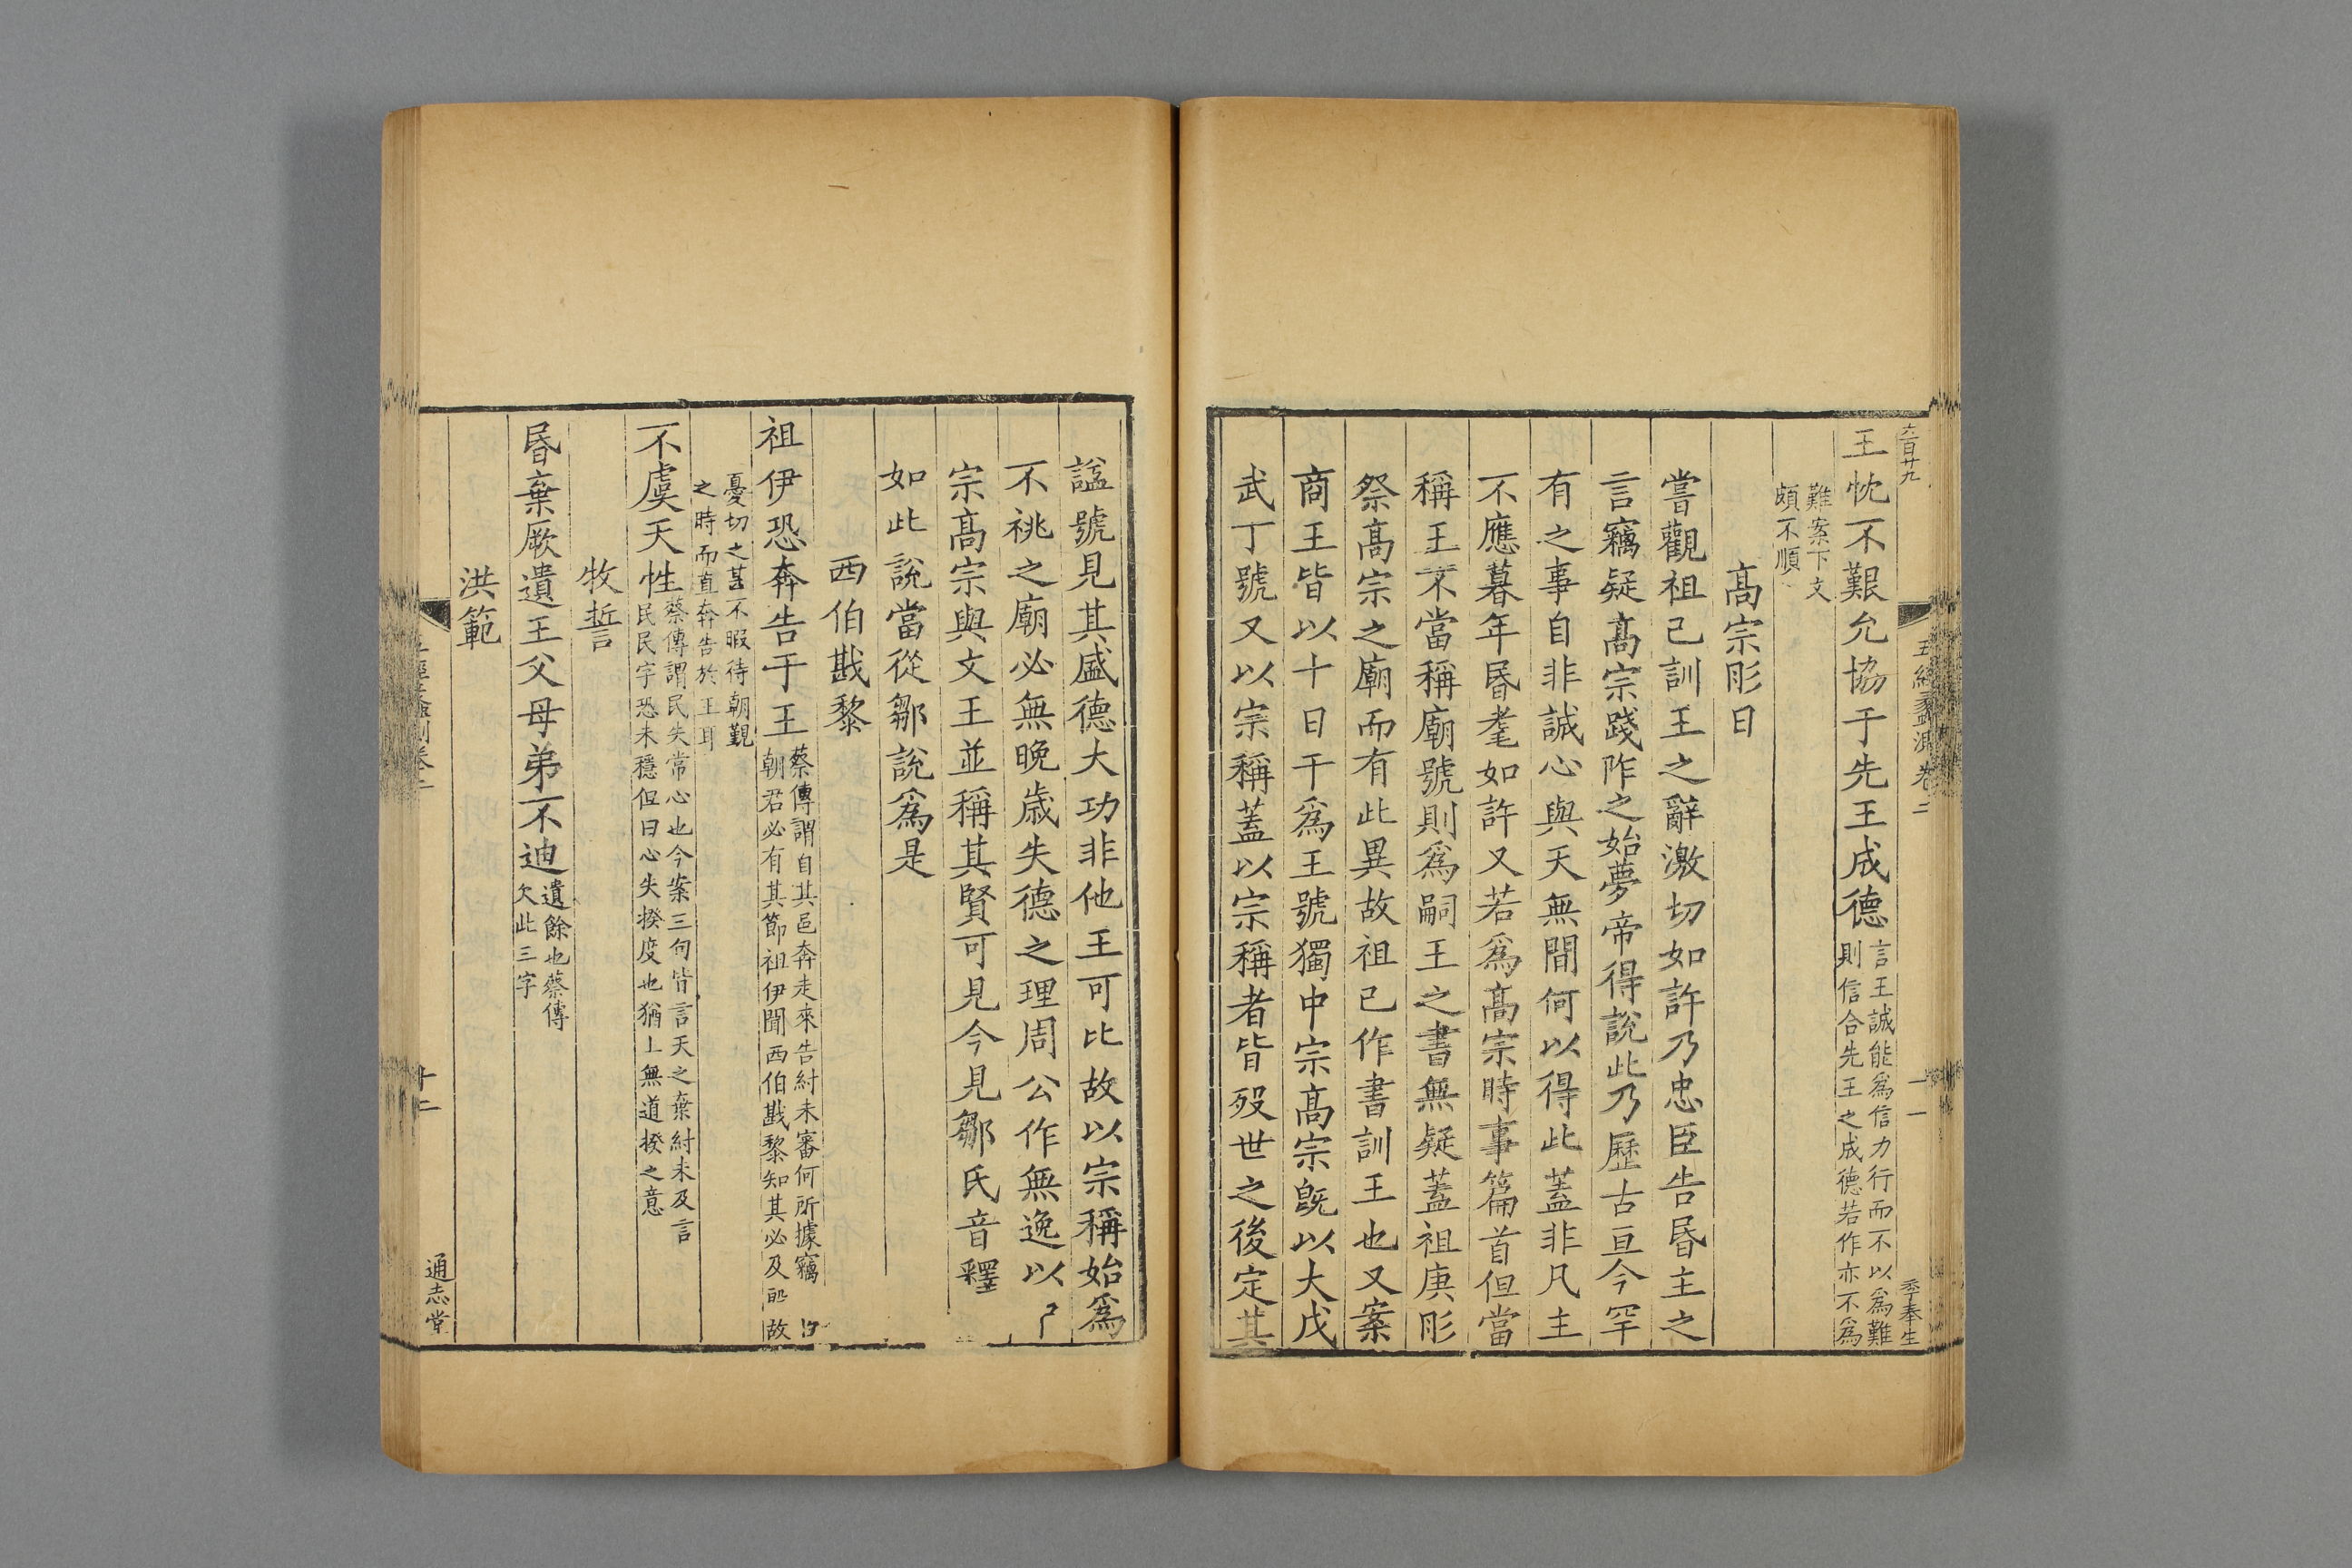 六百廿九
五經蠡測卷二
一一
王忱不艱允協于先王成德
言王誠能爲信力行而不以爲難
則信合先王之成德若作亦不爲
難案下文
頗不順
高宗肜日
嘗觀祖己訓王之辭激切如許乃忠臣告昬主之
言竊疑高宗踐阼之始夢帝得說此乃歷古亘今罕
有之事自非誠心與天無間何以得此蓋非凡主
不應暮年昬耄如許又若爲高宗時事篇首但當
稱王不當稱廟號則爲嗣王之書無疑蓋祖庚肜
祭高宗之廟而有此異故祖己作書訓王也又案
商王皆以十日干爲王號獨中宗高宗旣以大戊
武丁號又以宗稱蓋以宗稱者皆歿世之後定其
諡號見其盛德大功非他王可比故以宗稱始爲
不祧之廟必無晚歲失德之理周公作無逸以
宗高宗與文王並稱其賢可見今見鄒氏音釋
如此說當從鄒說爲是
西伯戡黎
祖伊恐奔告于王
蔡傳謂自其邑奔走來告紂未審何所據竊
朝君必有其節祖伊聞西伯戡黎知其必及故
憂切之甚不暇待朝覲
之時而直奔告於王耳
不虞天性
蔡傳謂民失常心也今案三句皆言天之棄紂未及言
民民字恐未穩但曰心失揆度也猶上無道揆之意
牧誓
昬棄厥遺王父母弟不迪
遺餘也蔡傳
欠此三字
洪範
十二
通志堂